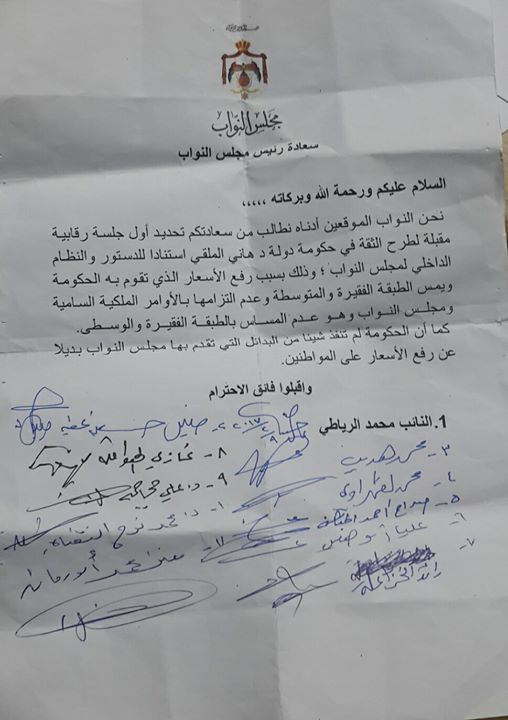 مجلس النواب
سعادة رئيس مجلس النواب
السلام عليكم ورحمة الله وبركاته ،،،،،
نحن النواب الموقعين أدناه نطالب من سعادتكم تحديد أول جلسة رقابية
مقبلة لطرح الثقة في حكومة دولة د هاني الملقي استنادا للدستور والنظام
الداخلي لمجلس النواب ؛ وذلك بسبب رفع الأسعار الذي تقوم به الحكومة
ويمس الطبقة الفقيرة والمتوسطة وعدم التزامها بالأوامر الملكية السامية
ومجلس النواب وهو عدم المساس بالطبقة الفقيرة والوسطى.
كما أن الحكومة لم تنفذ شيئا من البدائل التي تقدم بها مجلس النواب بديلا
عن رفع الأسعار على المواطنين.
واقبلوا فائق الاحترام
1. النائب محمد الرياطي
٣- محمد هديب
٨- غازي
٤- محمد الظهراوي
٩- د. علي
٥- صداح احمد
١٠- د. محمد نوح القضاة
٦- عليا أبو
٧- رائد الخزاعلة